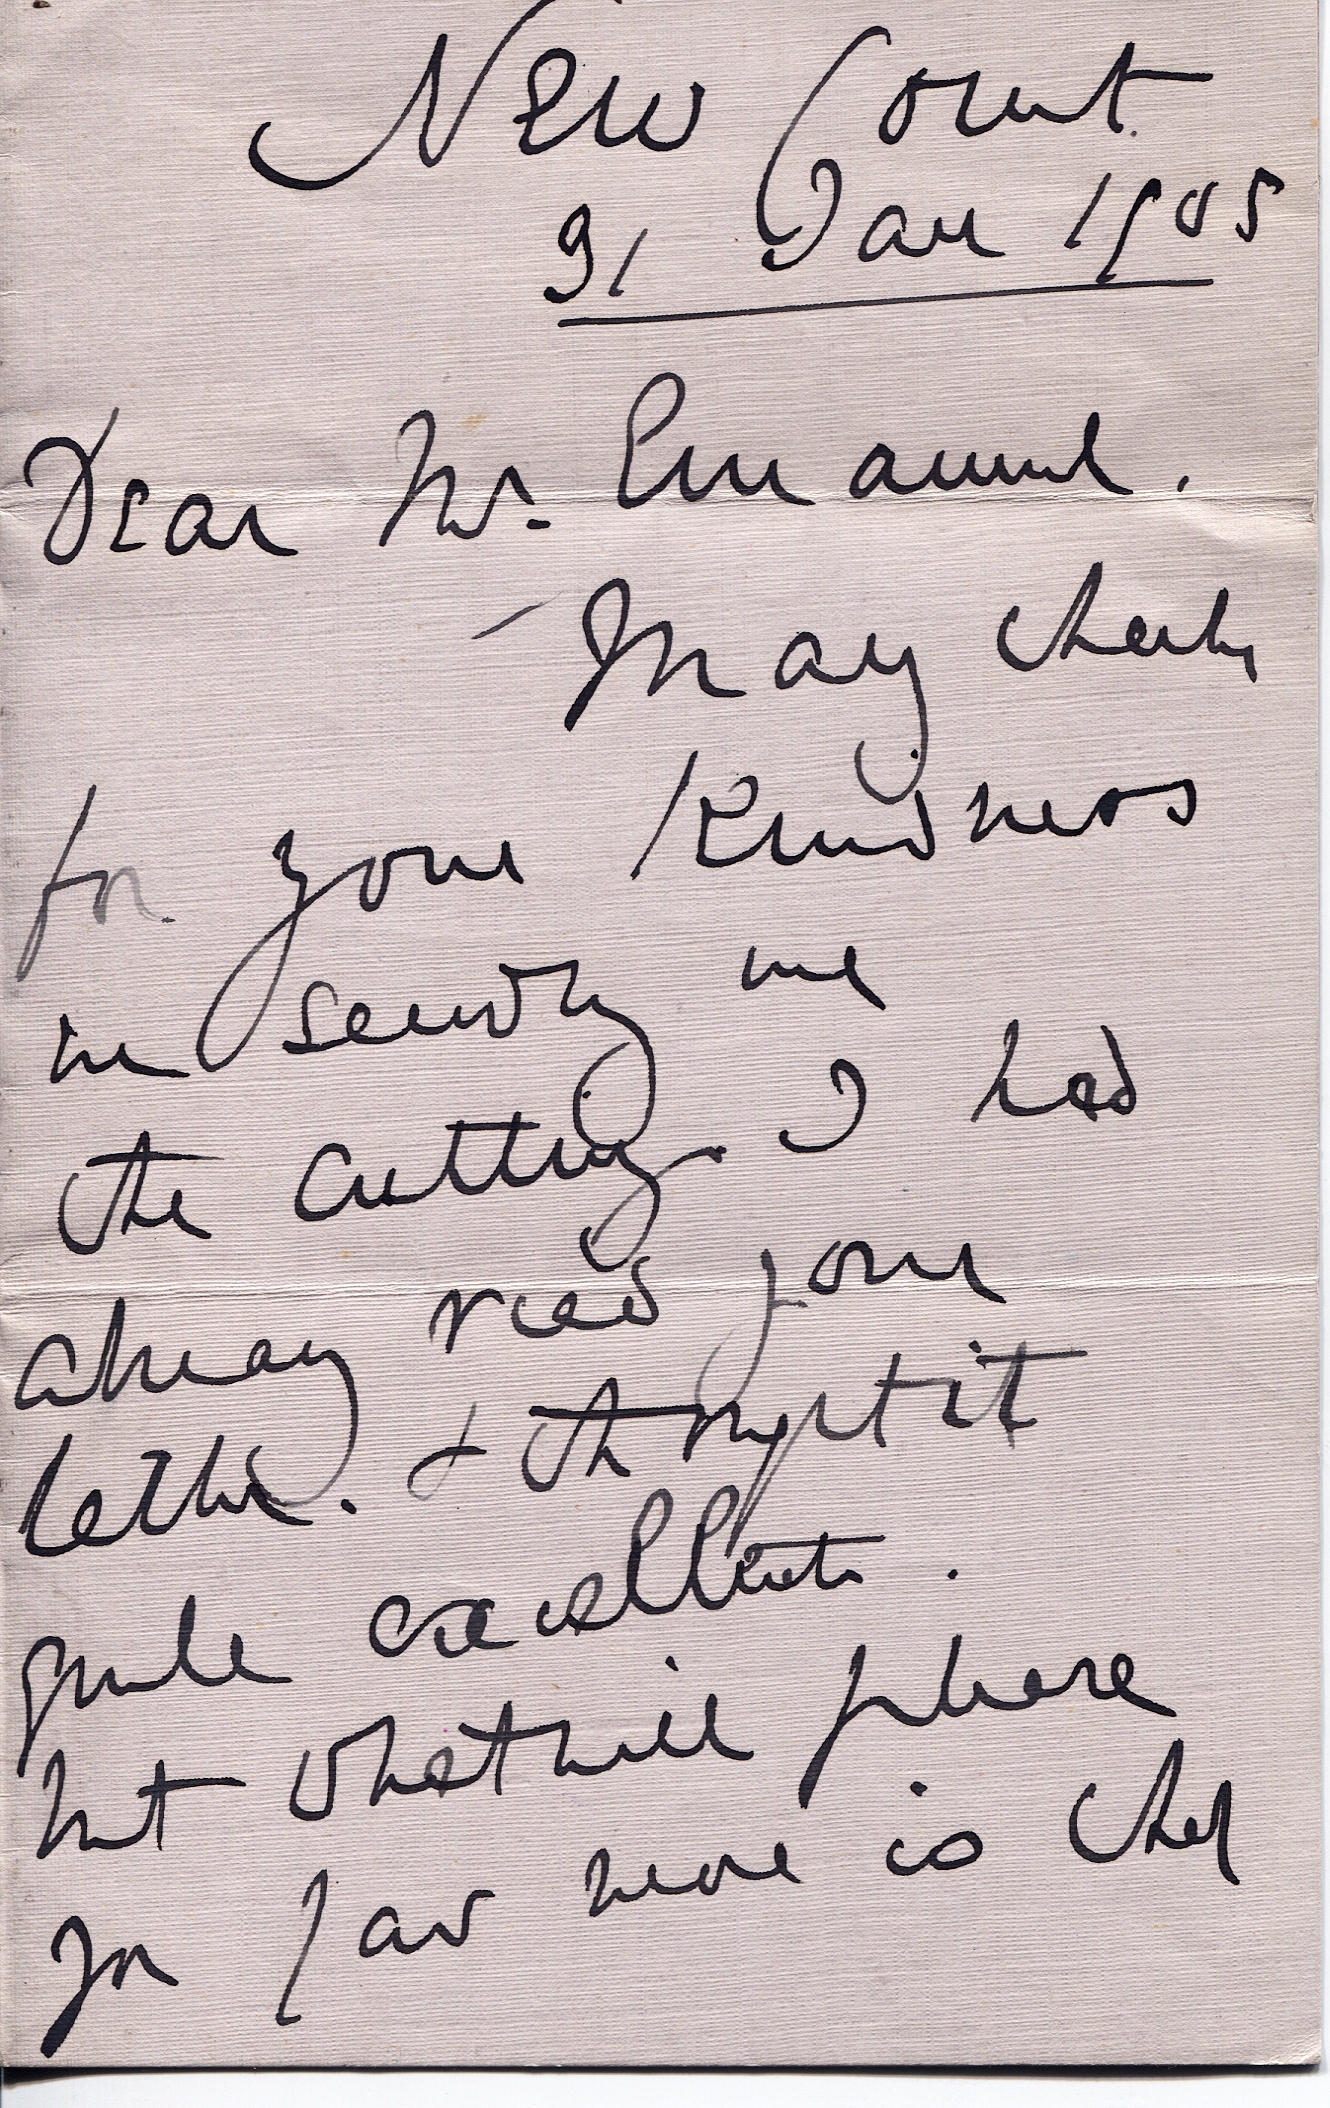 New Court
31 Jan 1905
Dear Mr. Emanuel.
Many thanks
for your kindness
in sending me
the cutting. I had
already read your
letter. & thought it
quite excellent.
but what will please
you far more is that